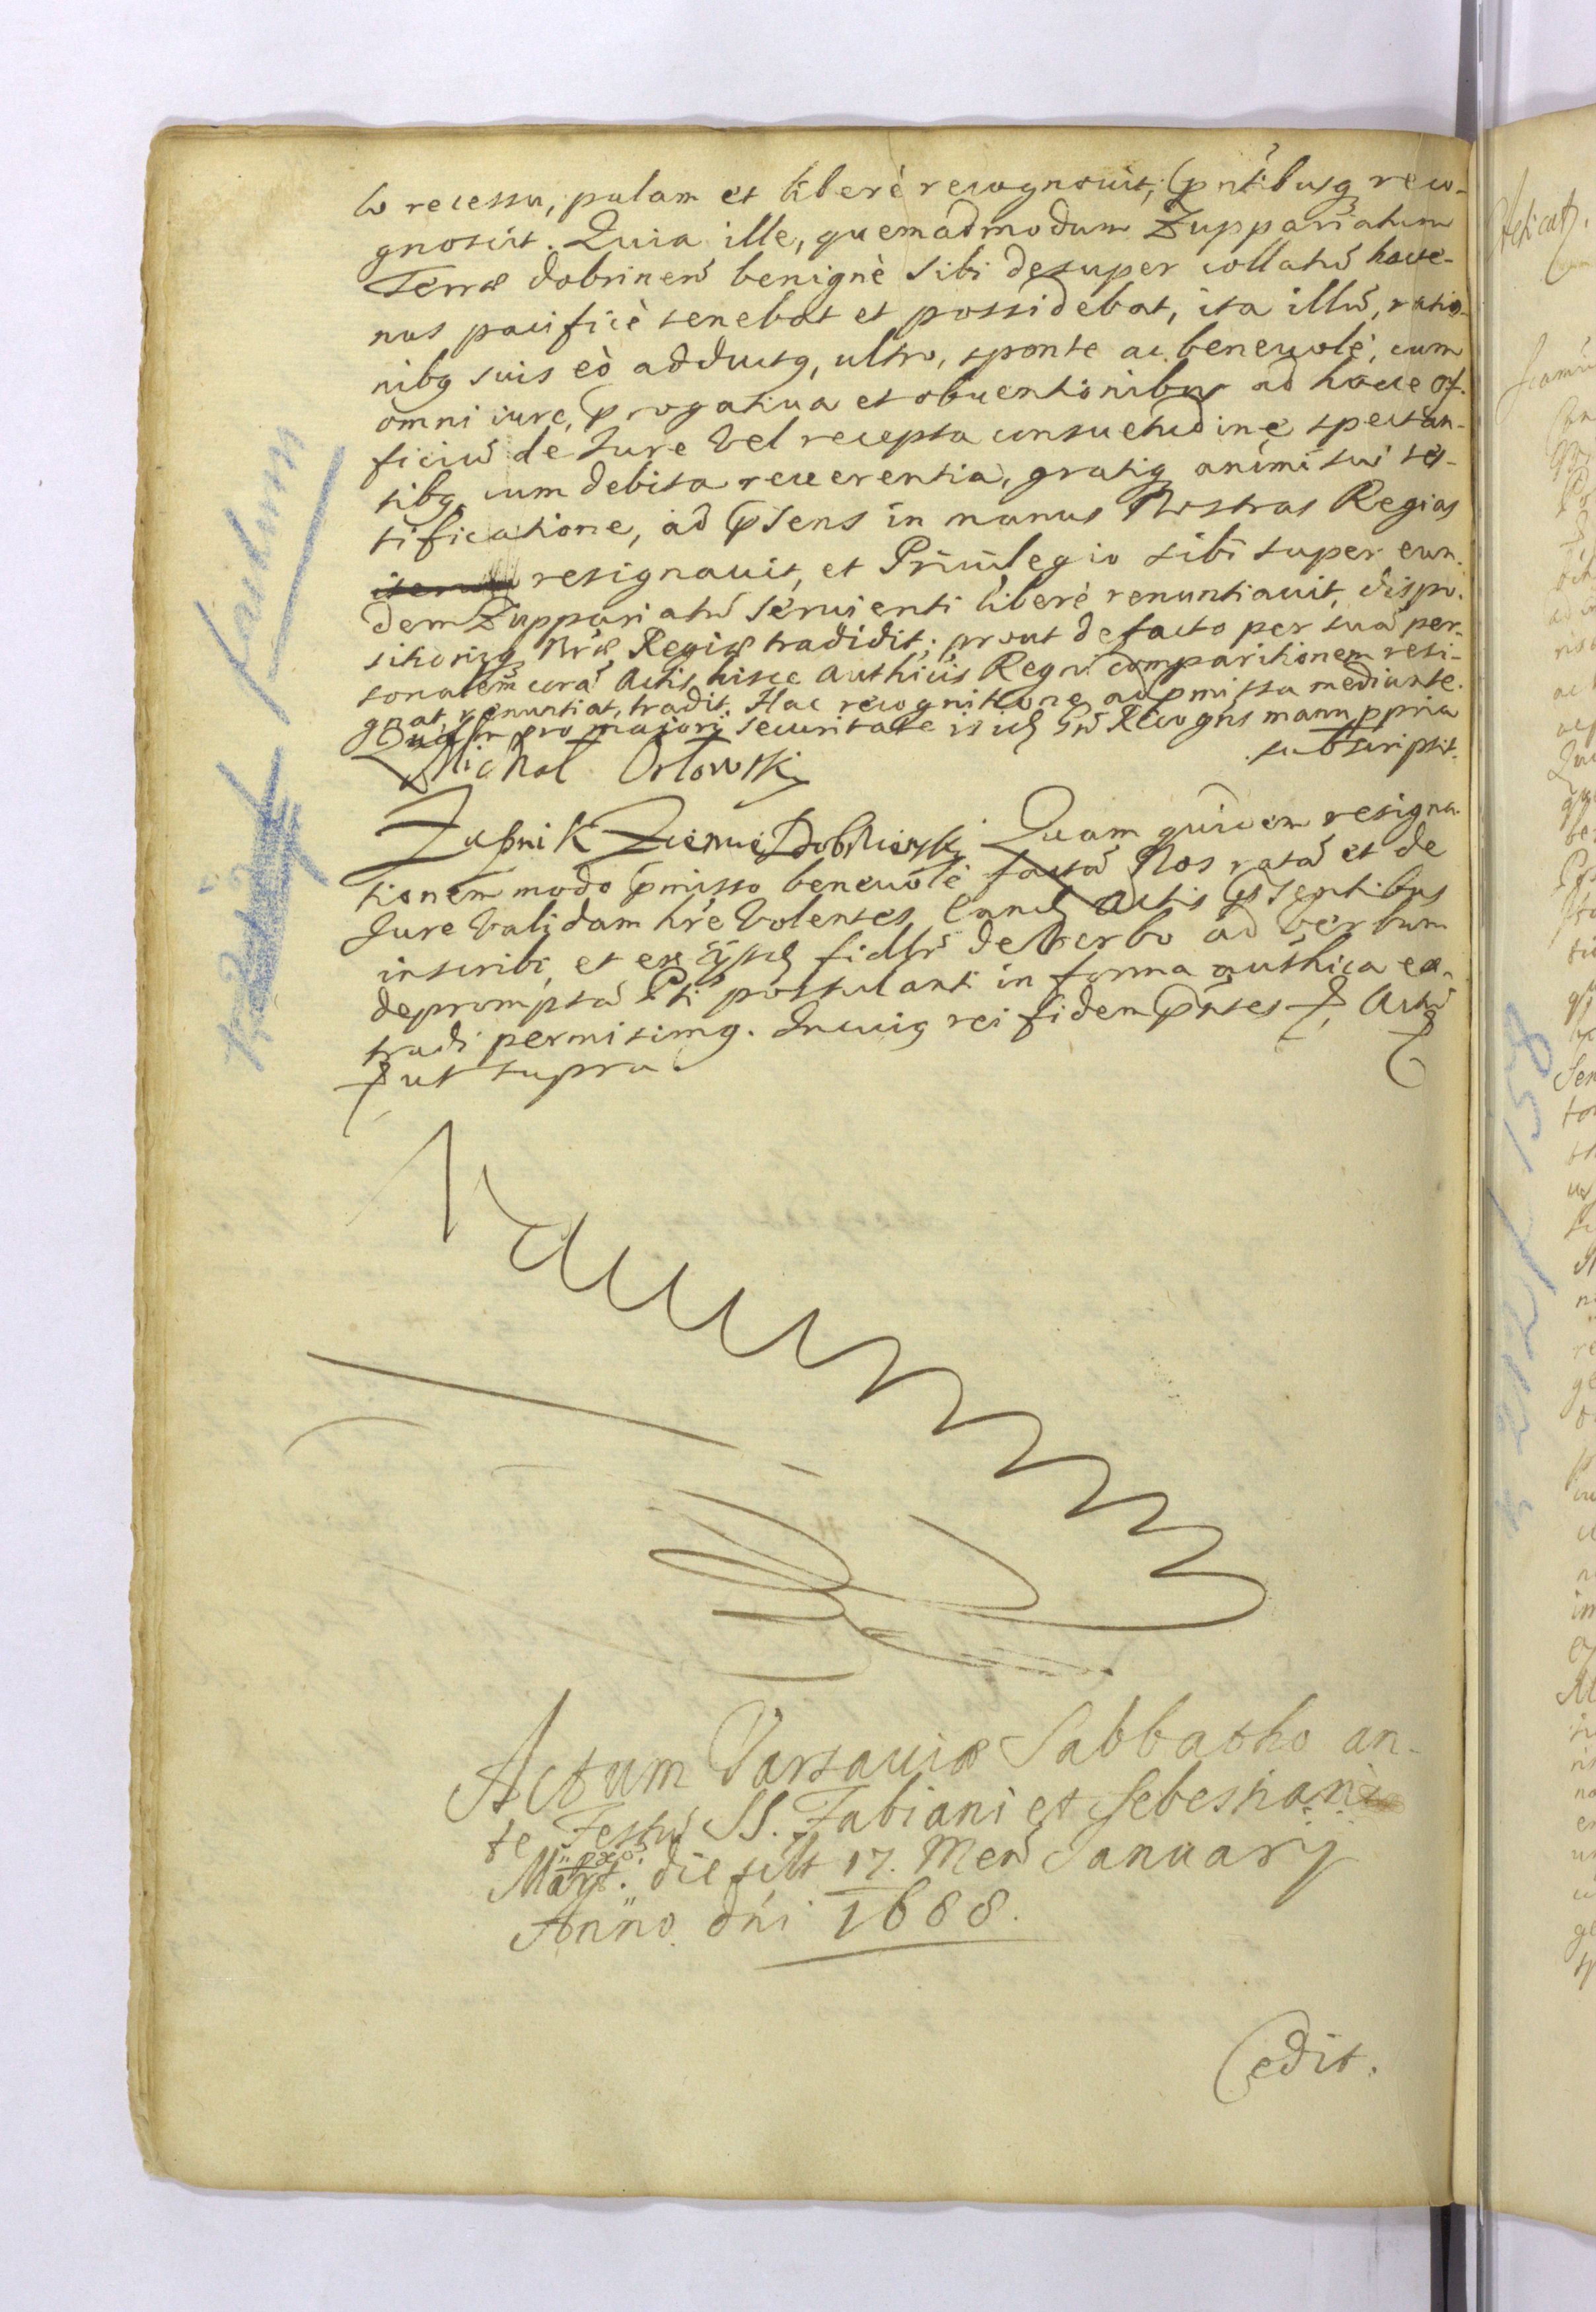 lo recessu, palam et liberè recognovit, pntibusq reco-
gnoscit. Quia ille, quemadmodum Zuppariatum
Terræ dobrinen benignè sibi desuper collatū hacte-
nus pacificè tenebat et possidebat, ita illū, ratio-
nibq suis eò adductq, ultro, sponte ac benevolè, cum
omni iure, progativa et obventionibus ad hocce of-
ficiū de Jure Vel recepta consuetudine spectan-
tibq, cum debita reverentia, gratiq animi sui tes-
tificatione, ad psens in manus Nostras Regias
resignavit, et Privilegio sibi super eun-
dem Zuppariatū servienti liberè renuntiavit, dispo-
sitioniq Nræ Regiæ tradidit; prout de facto per suā per-
sonalem corā Actis hisce Authcis Regni comparitionem resi-
gnat, renuntiat, tradit. Hac recognitione ad pmissa mediante.
pro majori securitate Recogns manu ppria
subscripsit.
Michał Orłowski
Zupnik Ziemie Dobrienski Quam quidem resigna-
tionem modo pmisso benevolè factā Nos ratā et de
Jure Validam hre Volentes, Eand Actis psentibus
inscribi, et ex ijsd fidlr de Verbo ad verbum
depromptā Pti postulanti in forma authica ex-
tradi permisimq. In cuiq rei fidem pntes Actū
ut supra.
Actum Varsaviæ Sabbatho an-
te Festū SS. Fabiani et Sebestiani
Mart. die scilt 17. Men January
Anno dni 1688.
Cedit.